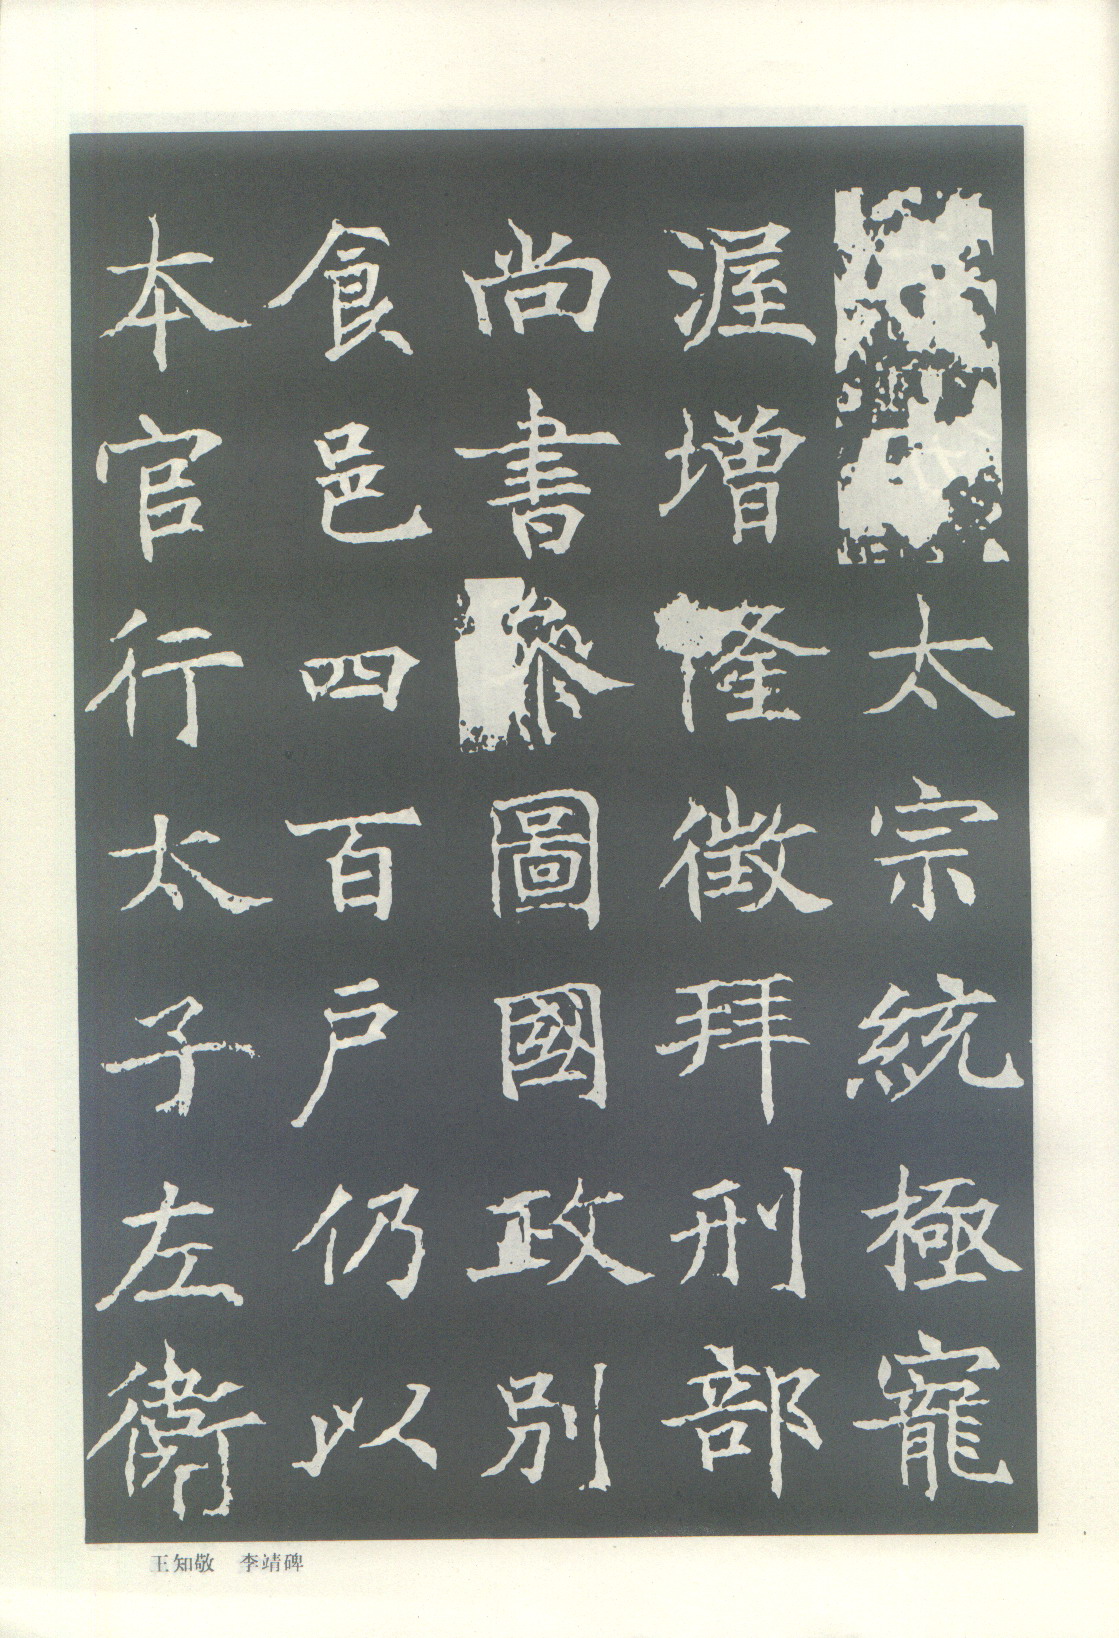 太宗統極寵
渥增隆徵拜刑部
尚書參圖國政別
食邑四百戶仍以
本官行太子左衛
王知敬 李靖碑